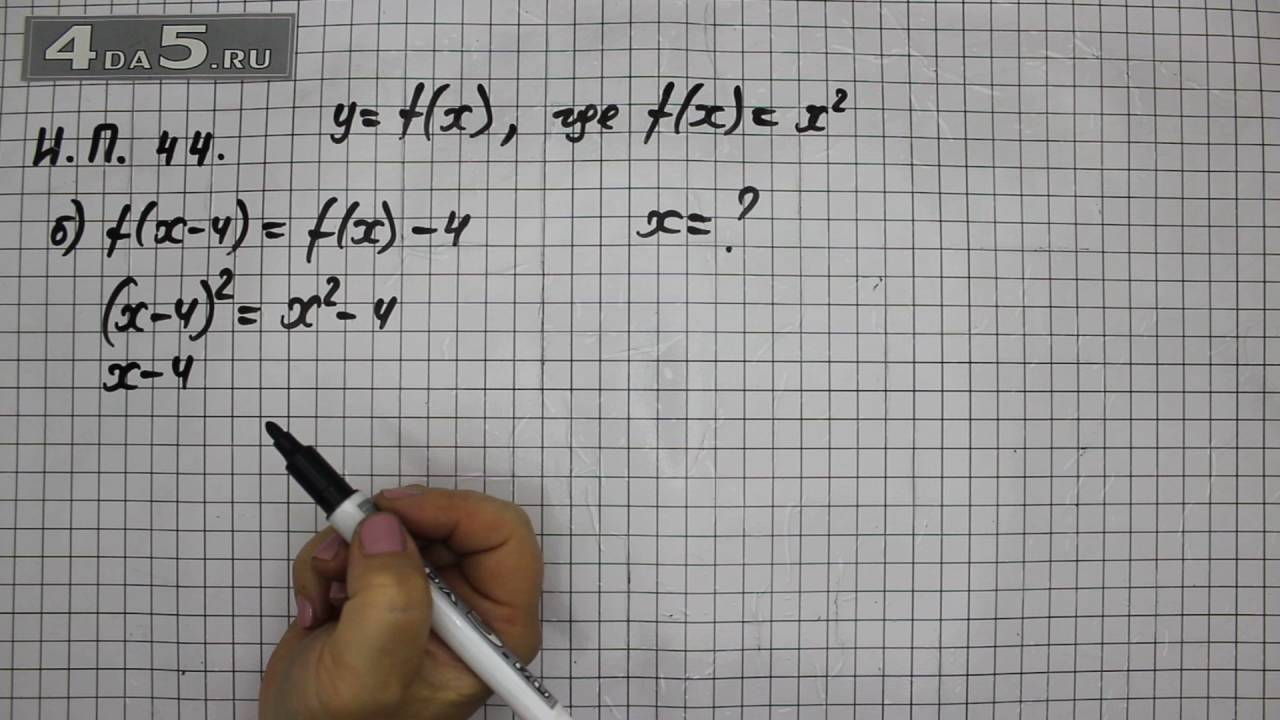 4DA5.RU
y = f(x), где f(x) = x²
Н.П. 44.
б) f(x-4) = f(x) - 4
x = ?
(x-4)² = x² - 4
x - 4